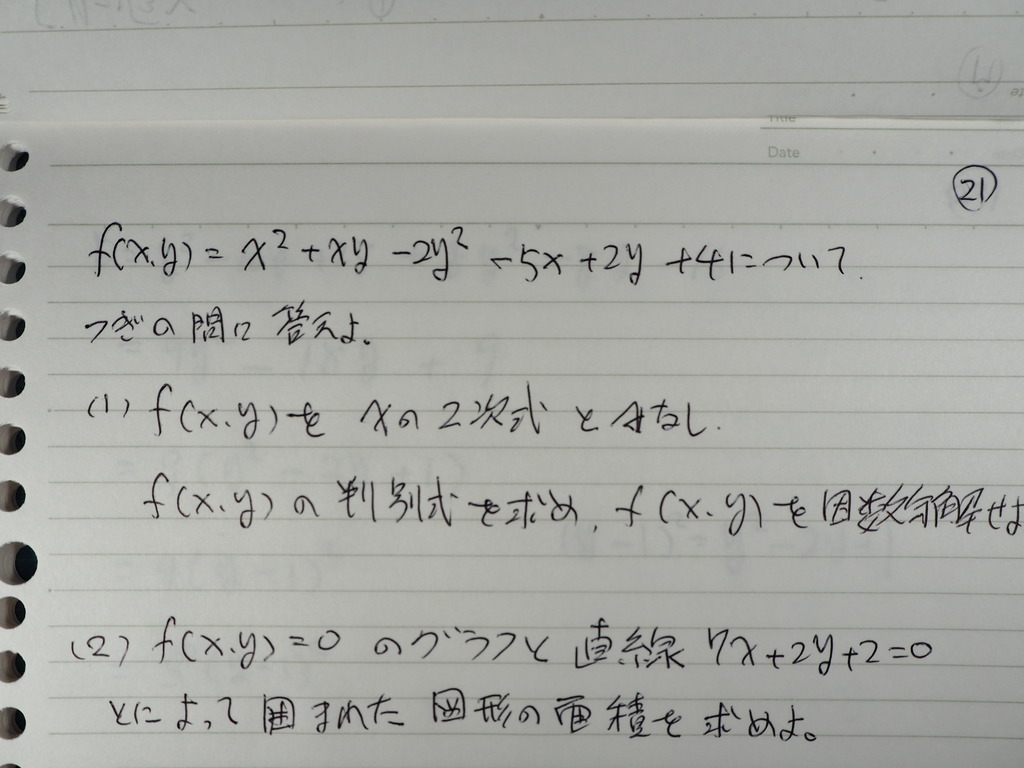 Title
Date
21
f(x,y) = x² + xy - 2y² - 5x + 2y + 4について.
つぎの問に答えよ。
(1) f(x,y)を xの2次式 とみなし.
f(x,y)の判別式を求め, f(x,y)を因数分解せよ
(2) f(x,y)=0 のグラフと直線 7x+2y+2=0
とによって囲まれた図形の面積を求めよ。